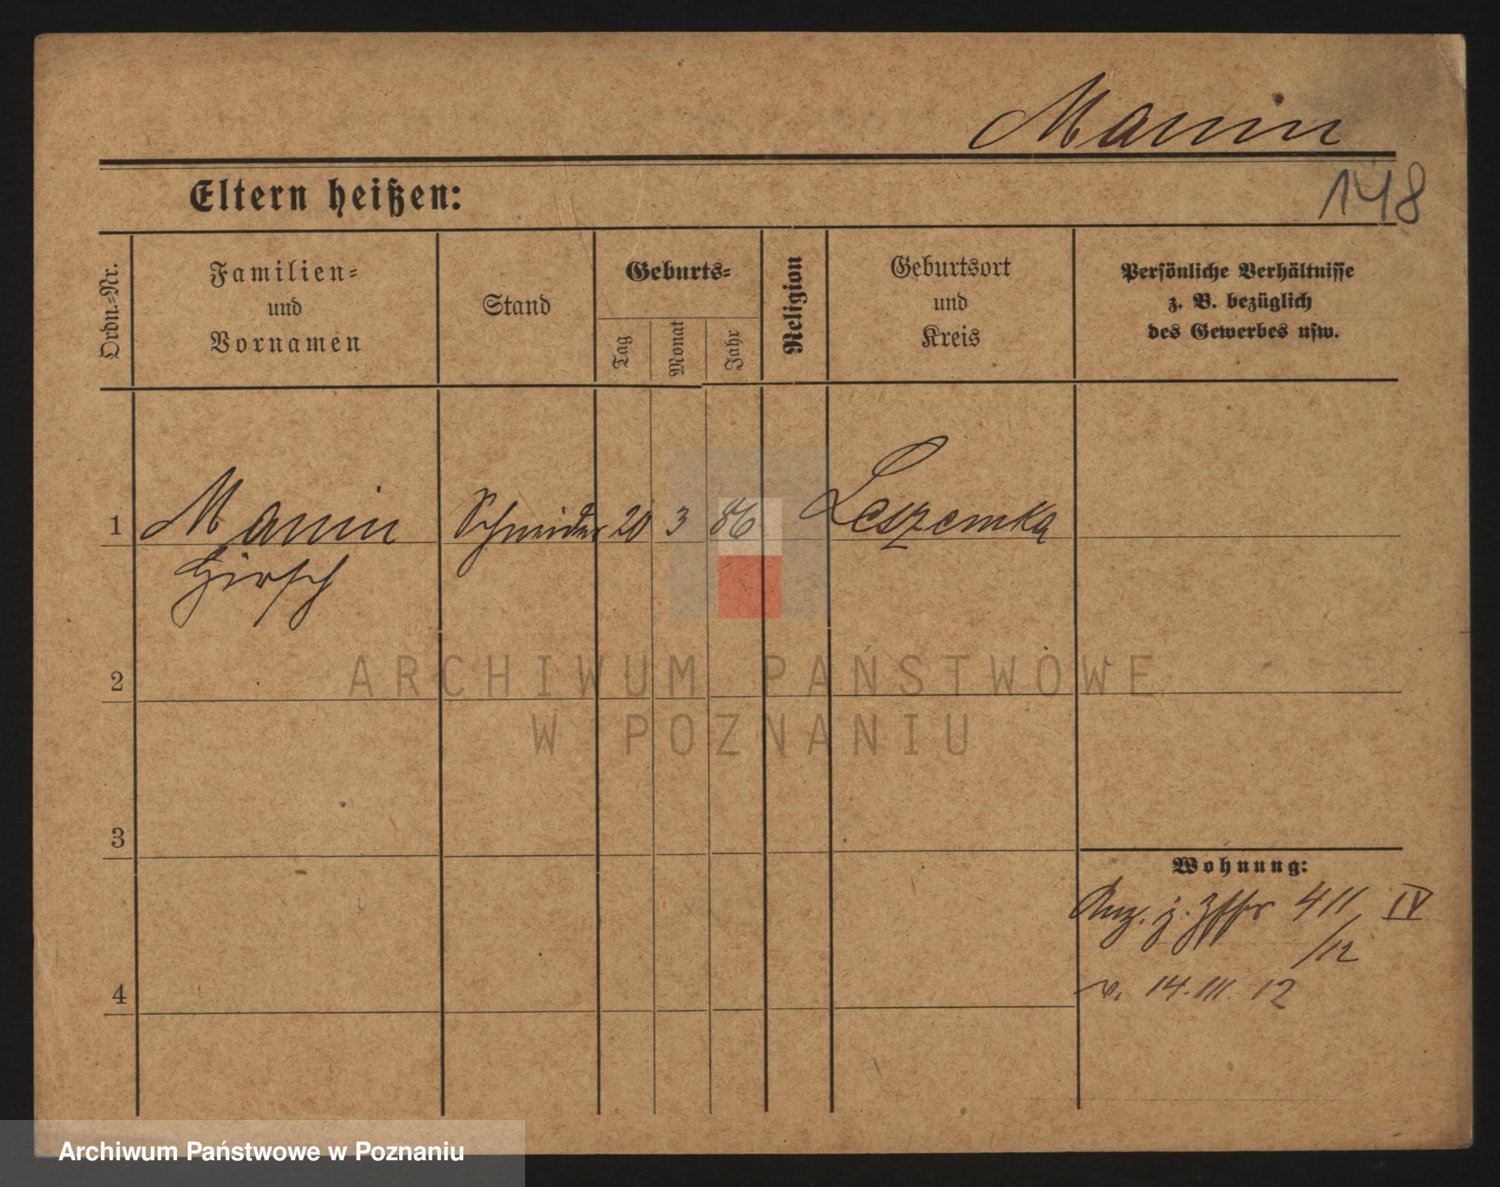 Manin
148
Eltern heißen:
Ordn.-Nr.
Familien-
und
Vornamen
Stand
Geburts-
Tag
Monat
Jahr
Religion
Geburtsort
und
Kreis
Persönliche Verhältnisse
z. B. bezüglich
des Gewerbes usw.
1 Manin Schneider 20 3 86 Leszemka
Hirsch
2
3
4
Wohnung:
411 IV
/12
v. 14. III. 12
ARCHIWUM PAŃSTWOWE
W POZNANIU
Archiwum Państwowe w Poznaniu